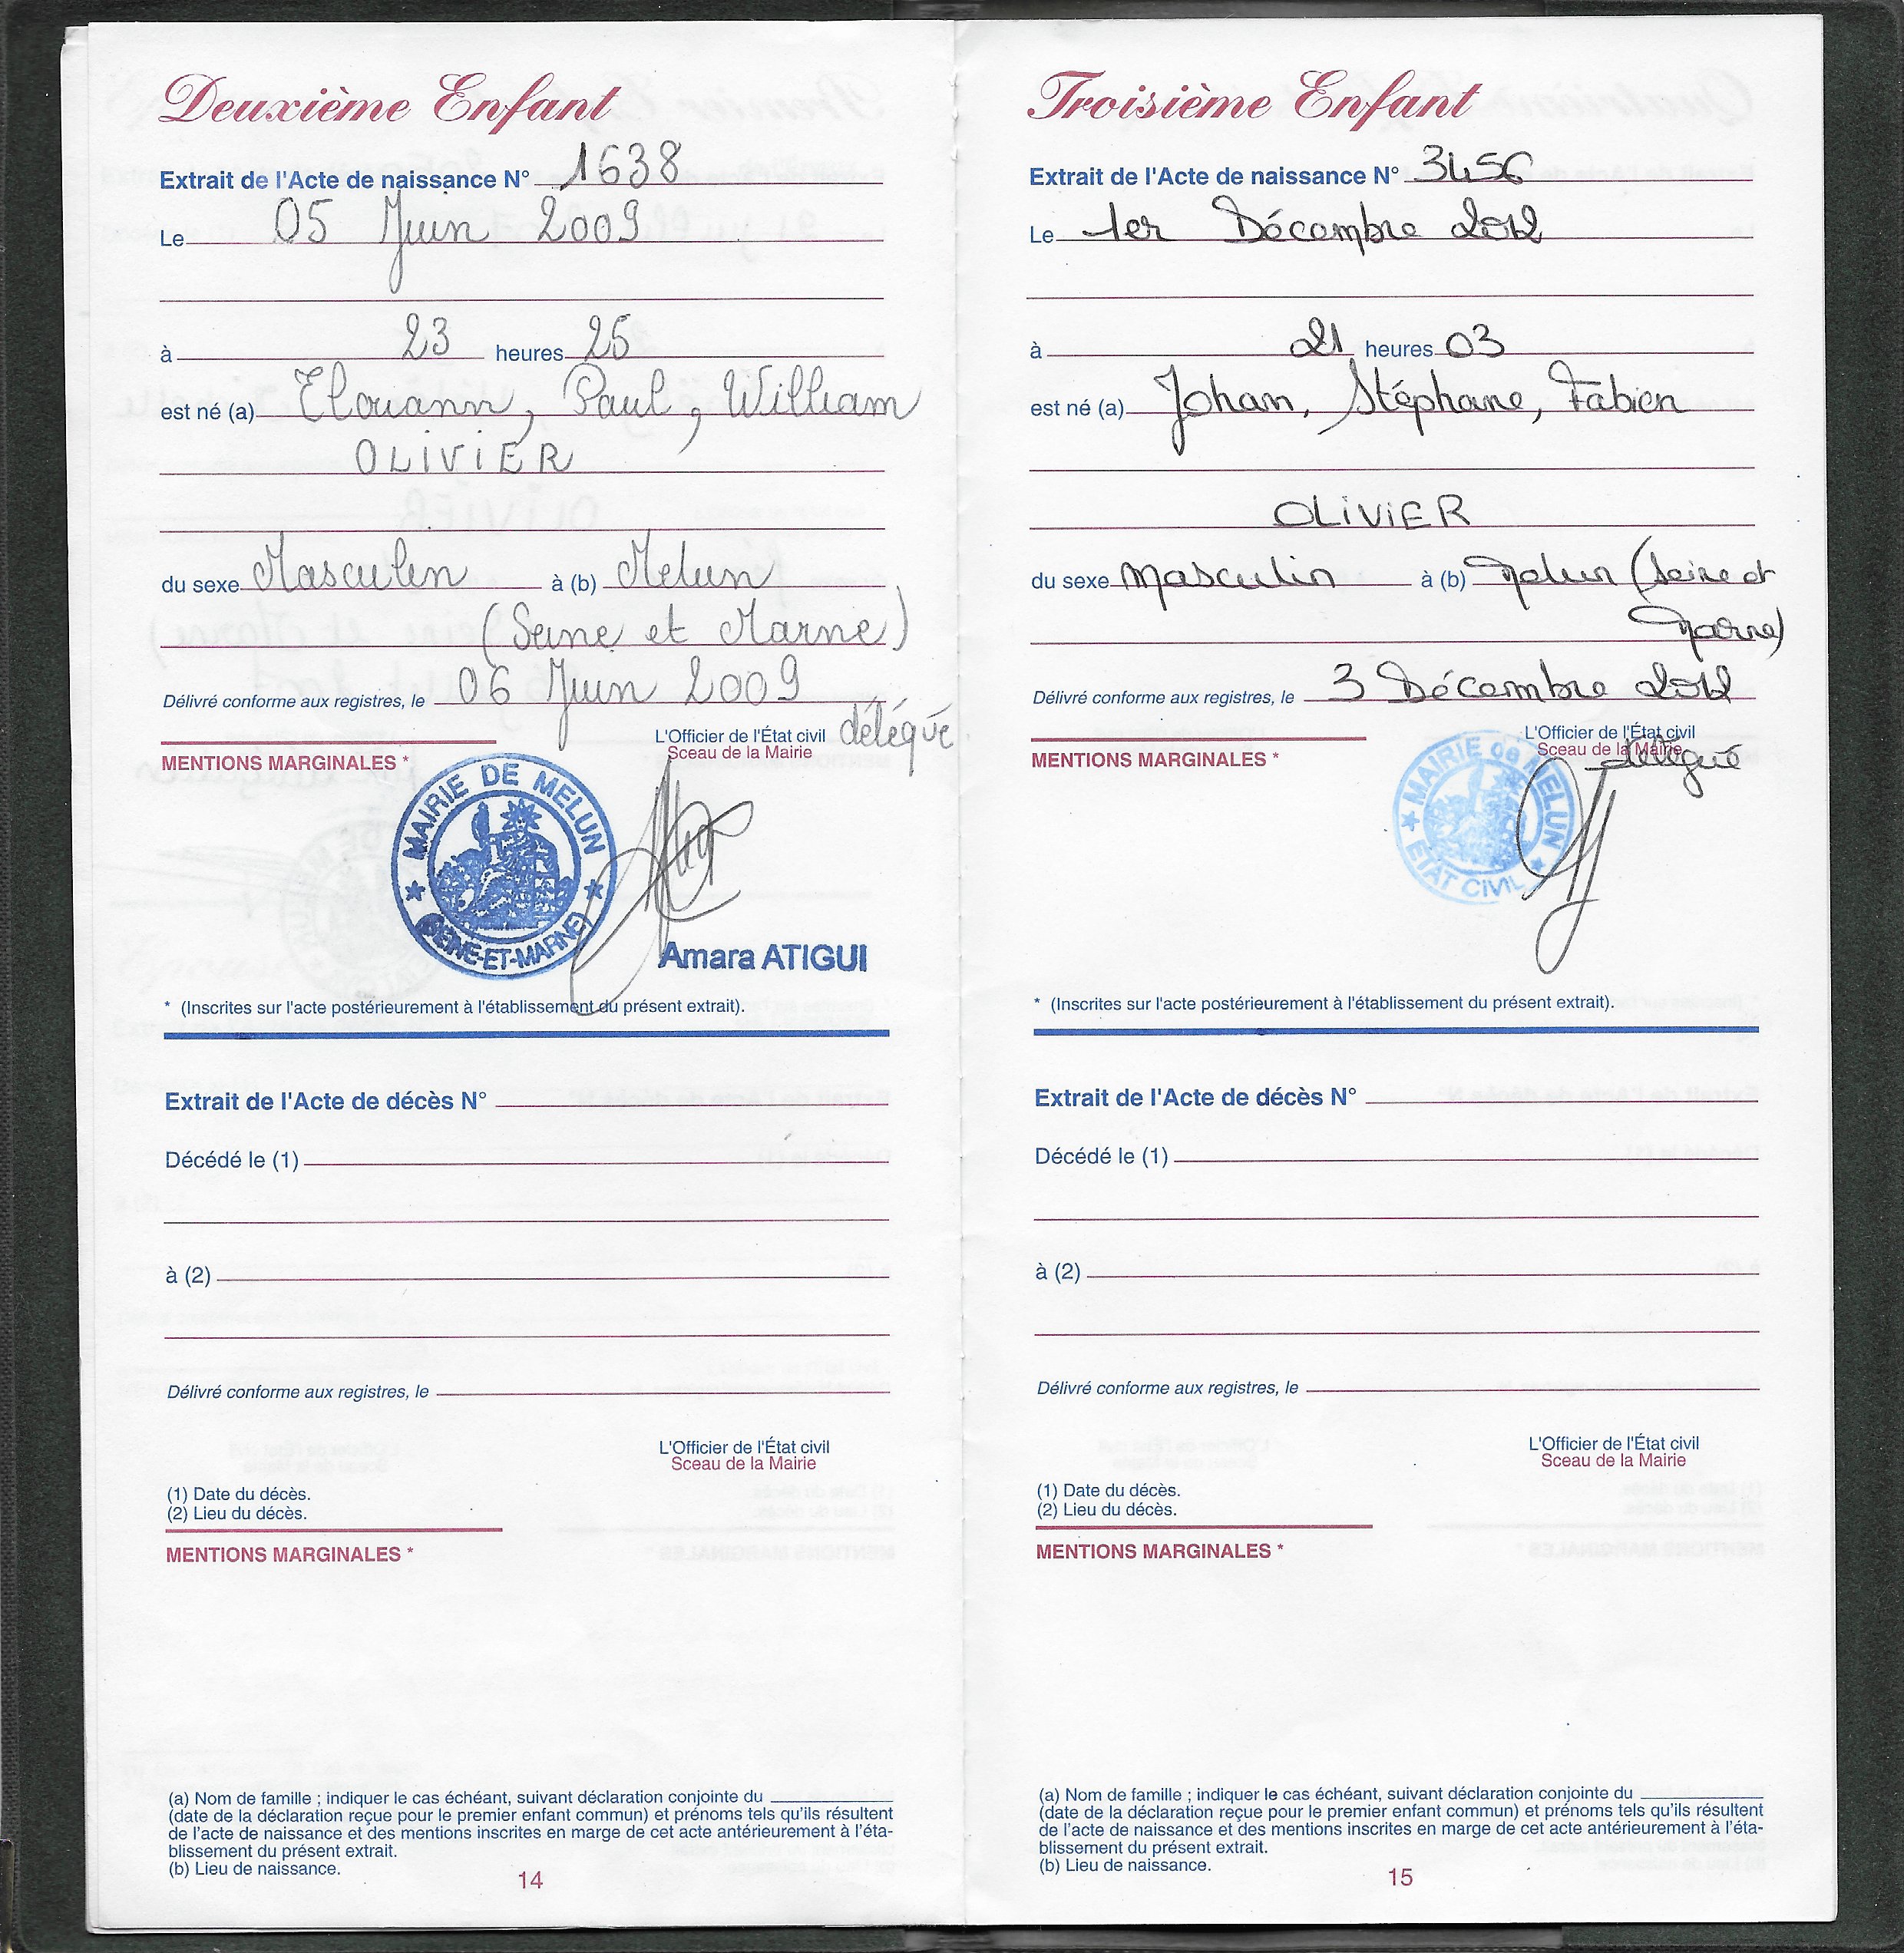 Deuxième Enfant
Extrait de l'Acte de naissance N° 1638
Le 05 Juin 2009
à 23 heures 25
est né (a) Elouann, Paul, William
OLIVIER
du sexe Masculin à (b) Melun
(Seine et Marne)
Délivré conforme aux registres, le 06 Juin 2009
L'Officier de l'État civil délégué
Sceau de la Mairie
MENTIONS MARGINALES *
MAIRIE DE MELUN
(SEINE-ET-MARNE)
Amara ATIGUI
* (Inscrites sur l'acte postérieurement à l'établissement du présent extrait).
Extrait de l'Acte de décès N°
Décédé le (1)
à (2)
Délivré conforme aux registres, le
L'Officier de l'État civil
Sceau de la Mairie
(1) Date du décès.
(2) Lieu du décès.
MENTIONS MARGINALES *
(a) Nom de famille ; indiquer le cas échéant, suivant déclaration conjointe du
(date de la déclaration reçue pour le premier enfant commun) et prénoms tels qu'ils résultent
de l'acte de naissance et des mentions inscrites en marge de cet acte antérieurement à l'éta-
blissement du présent extrait.
(b) Lieu de naissance.
14
Troisième Enfant
Extrait de l'Acte de naissance N° 3456
Le 1er Décembre 2012
à 21 heures 03
est né (a) Johan, Stéphane, Fabien
OLIVIER
du sexe masculin à (b) Melun (Seine et
Marne)
Délivré conforme aux registres, le 3 Décembre 2012
L'Officier de l'État civil
Sceau de la Mairie
délégué
MENTIONS MARGINALES *
MAIRIE de MELUN
ETAT CIVIL
* (Inscrites sur l'acte postérieurement à l'établissement du présent extrait).
Extrait de l'Acte de décès N°
Décédé le (1)
à (2)
Délivré conforme aux registres, le
L'Officier de l'État civil
Sceau de la Mairie
(1) Date du décès.
(2) Lieu du décès.
MENTIONS MARGINALES *
(a) Nom de famille ; indiquer le cas échéant, suivant déclaration conjointe du
(date de la déclaration reçue pour le premier enfant commun) et prénoms tels qu'ils résultent
de l'acte de naissance et des mentions inscrites en marge de cet acte antérieurement à l'éta-
blissement du présent extrait.
(b) Lieu de naissance.
15